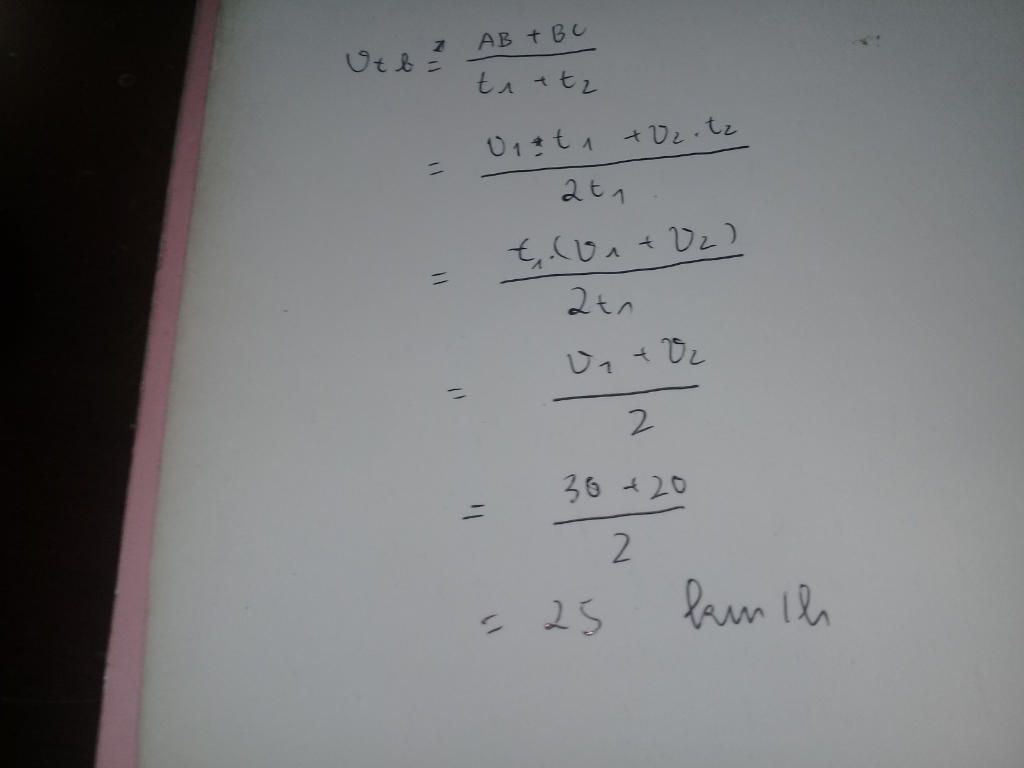 Vtb = AB + BC / t1 + t2
= v1 . t1 + v2 . t2 / 2t1
= t1.(v1 + v2) / 2t1
= v1 + v2 / 2
= 30 + 20 / 2
= 25 km/h